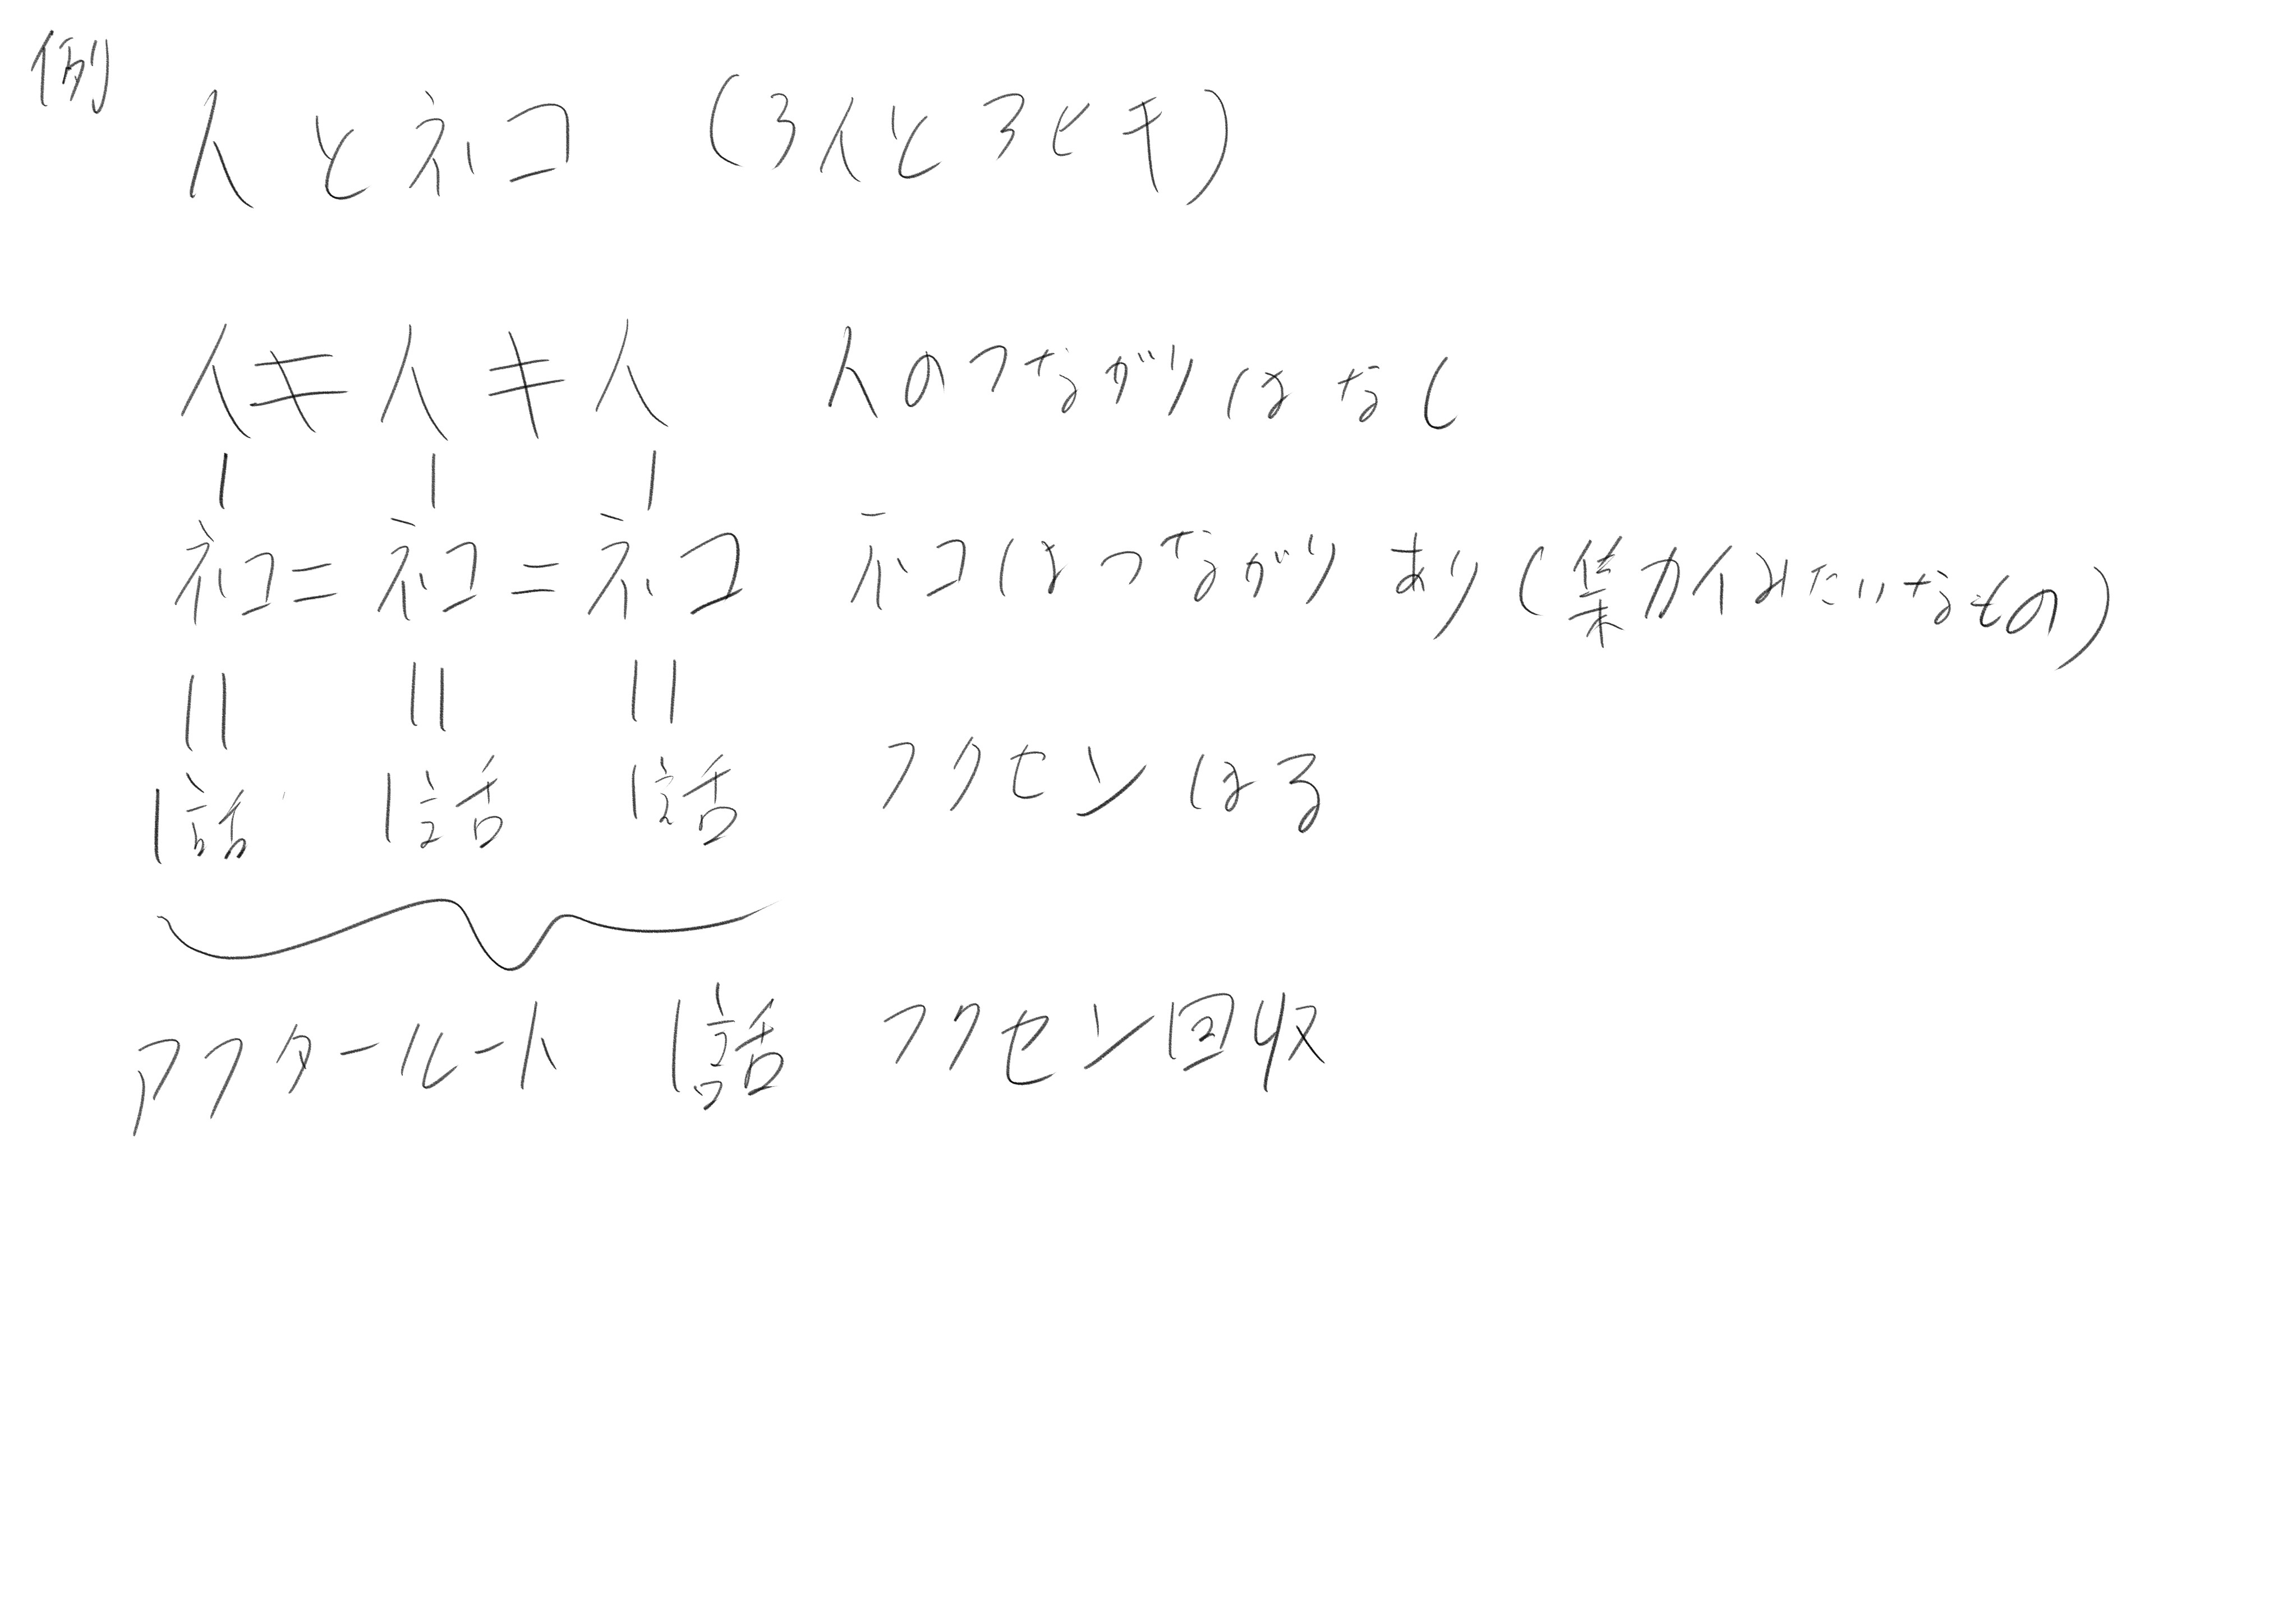 例
人とネコ (3人と3ヒキ)
人≠人≠人 人のつながりはなし
| | |
ネコ=ネコ=ネコ ネコはつながりあり(集カイみたいなもの)
|| || ||
1話 1話 1話 フクセンはる
アフタールート 1話 フクセン回収